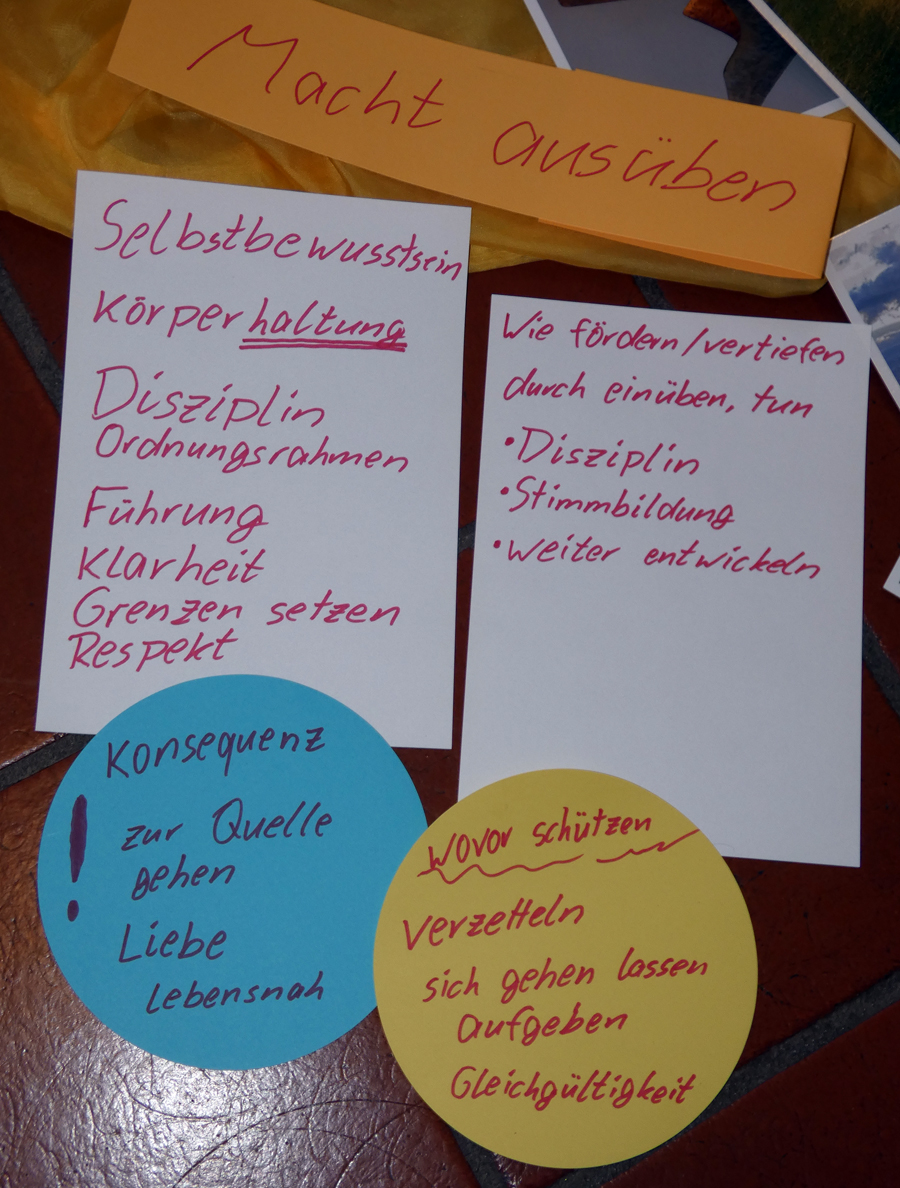 Macht ausüben
Selbstbewusstsein
Körperhaltung
Disziplin
Ordnungsrahmen
Führung
Klarheit
Grenzen setzen
Respekt
Wie fördern/vertiefen
durch einüben, tun
• Disziplin
• Stimmbildung
• weiter entwickeln
Konsequenz
! zur Quelle
gehen
Liebe
Lebensnah
wovor schützen
verzetteln
sich gehen lassen
aufgeben
Gleichgültigkeit